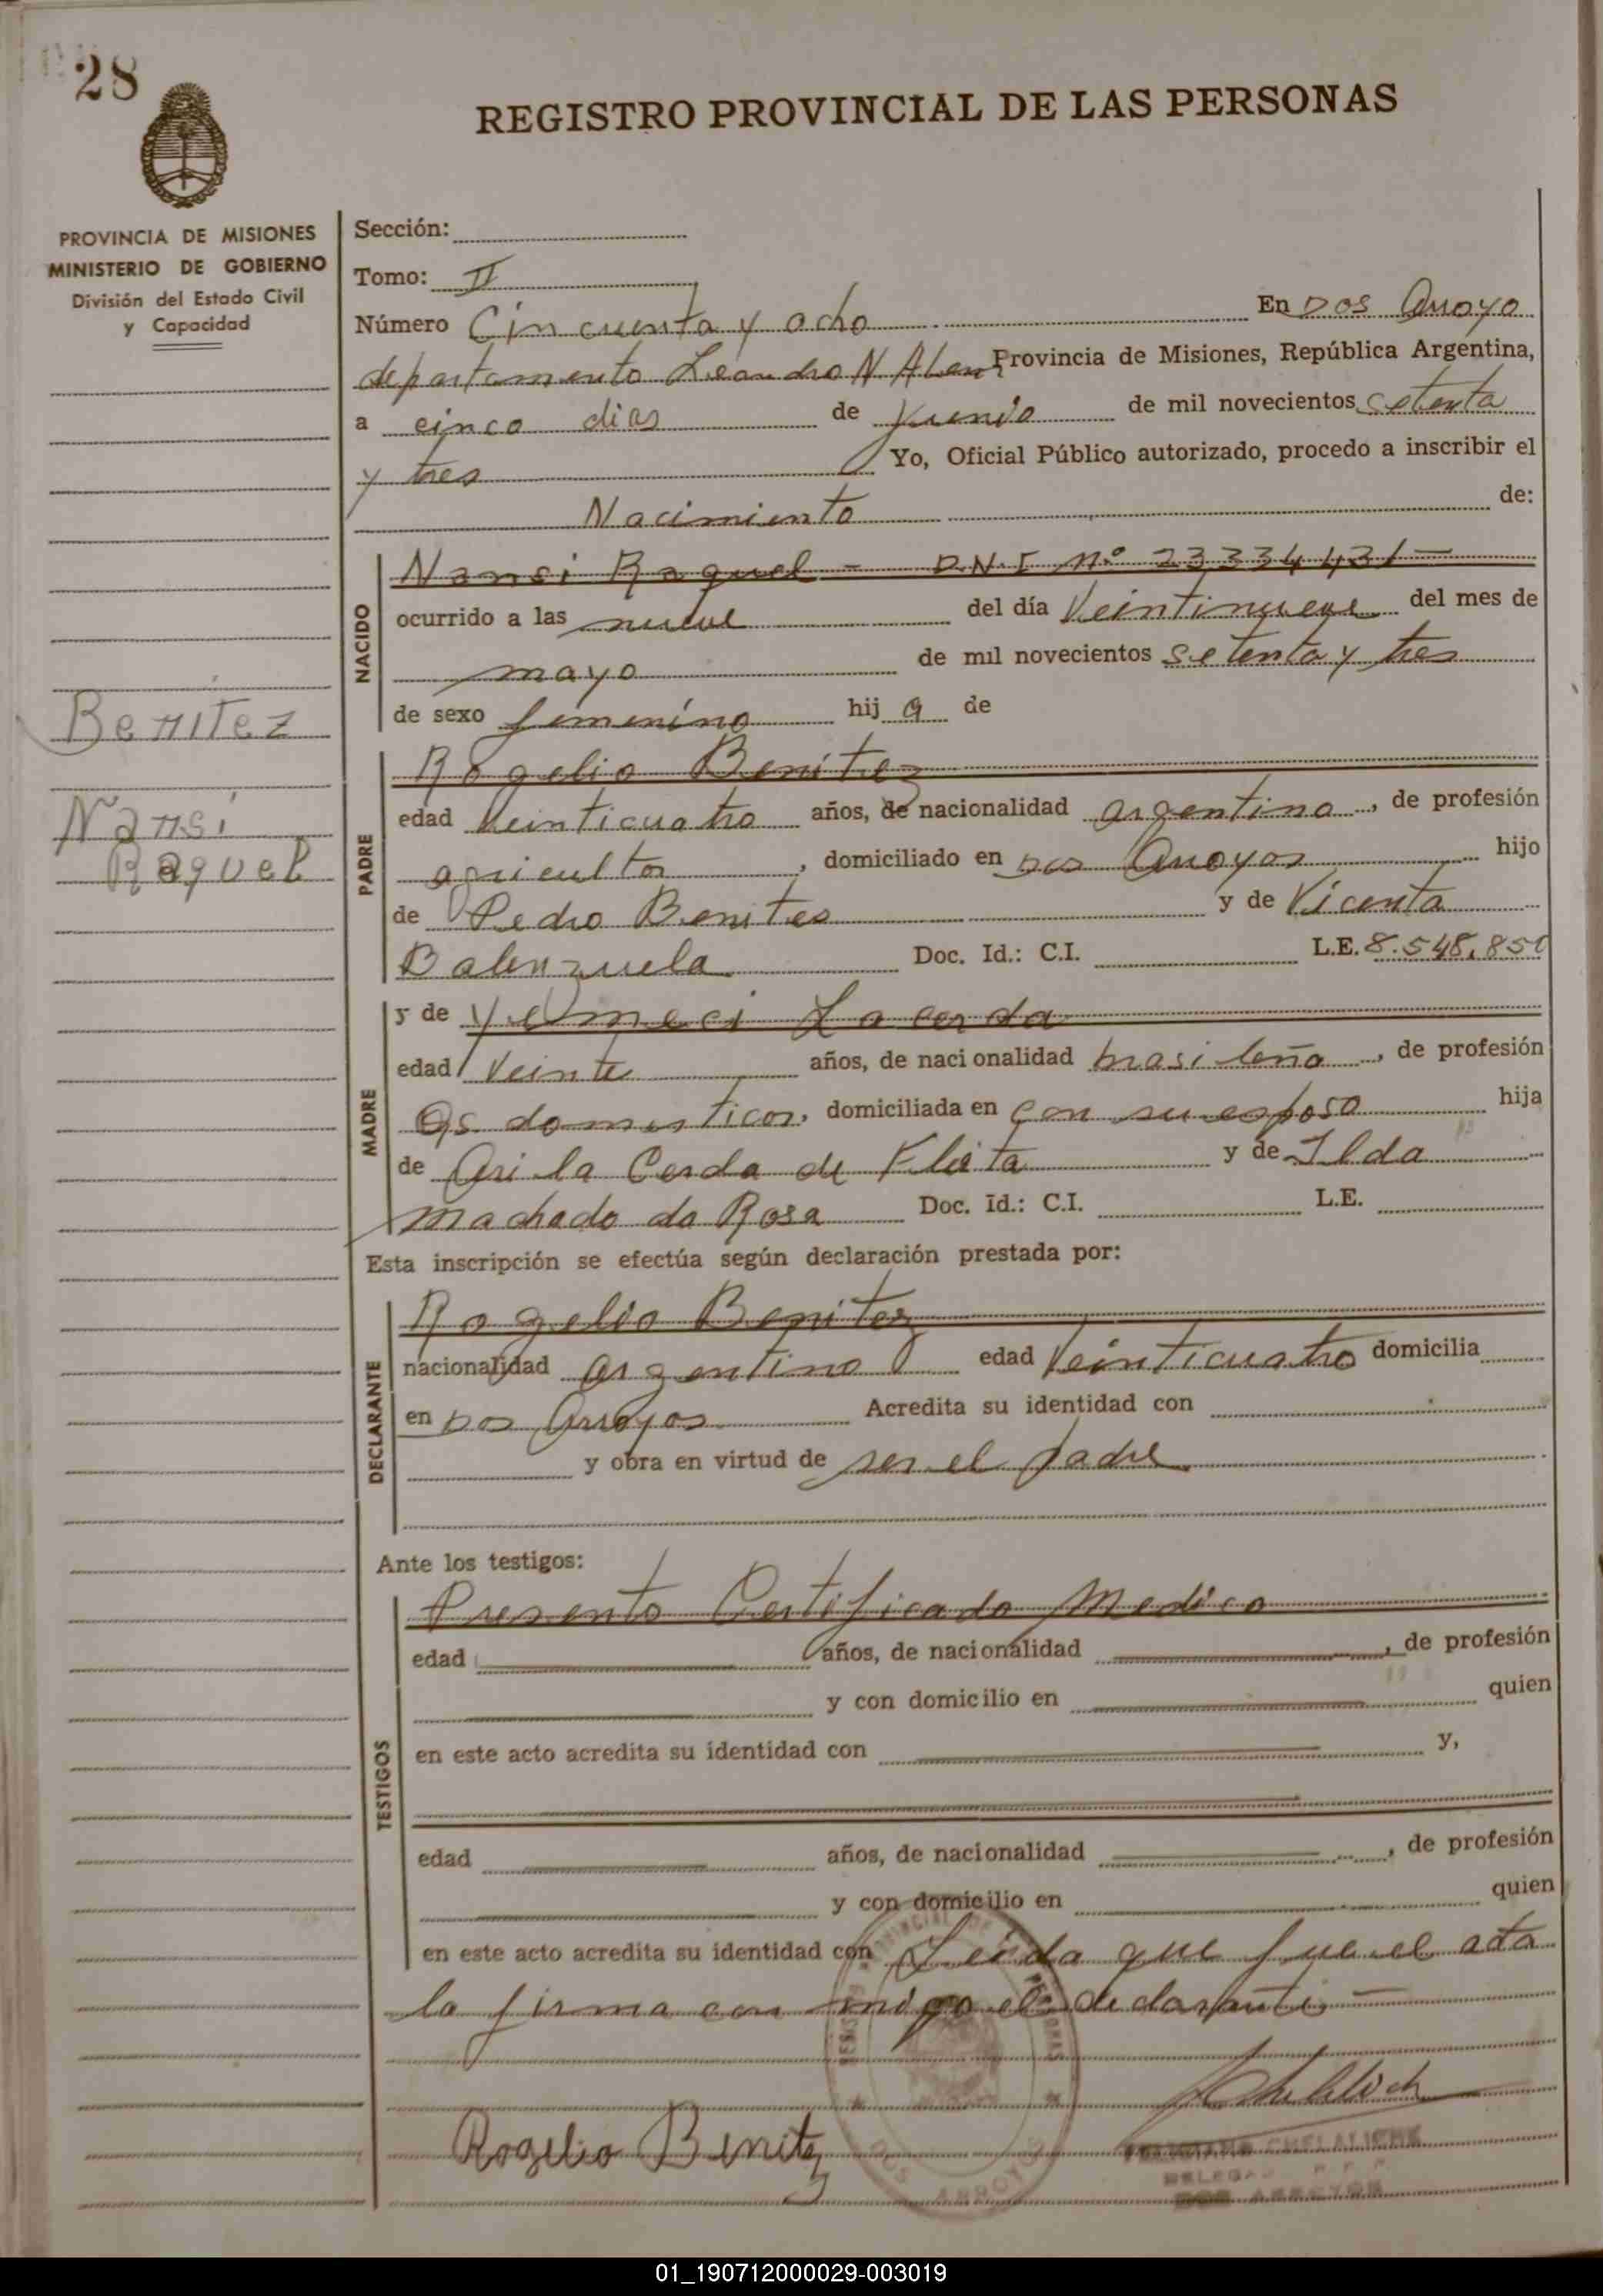 28
REGISTRO PROVINCIAL DE LAS PERSONAS
PROVINCIA DE MISIONES
MINISTERIO DE GOBIERNO
División del Estado Civil
y Capacidad
Benitez
Nansi
Raquel
Sección:
Tomo: II
Número Cincuenta y ocho En Dos Arroyo
departamento Leandro N Alem Provincia de Misiones, República Argentina,
a cinco dias de Junio de mil novecientos setenta
y tres Yo, Oficial Público autorizado, procedo a inscribir el
Nacimiento de:
NACIDO
Nansi Raquel - D.N.I Nº 23334431 -
ocurrido a las nueve del día Veintinueve del mes de
mayo de mil novecientos setenta y tres
de sexo femenino hij a de
PADRE
Rogelio Benitez
edad Veinticuatro años, de nacionalidad argentino, de profesión
agricultor, domiciliado en Dos Arroyos hijo
de Pedro Benites y de Vicenta
Balenzuela Doc. Id.: C.I. L.E. 8.548.850
MADRE
y de Yelmeci Lacerda
edad Veinte años, de nacionalidad brasileña, de profesión
Qs. domesticos, domiciliada en con su esposo hija
de Ari la Cerda de y de Ilda
Machado da Rosa Doc. Id.: C.I. L.E.
Esta inscripción se efectúa según declaración prestada por:
DECLARANTE
Rogelio Benitez
nacionalidad argentino edad Veinticuatro domicilia
en Dos Arroyos Acredita su identidad con
y obra en virtud de ser el padre
Ante los testigos:
TESTIGOS
Presento Certificado Medico
edad años, de nacionalidad , de profesión
y con domicilio en quien
en este acto acredita su identidad con y,
edad años, de nacionalidad , de profesión
y con domicilio en quien
en este acto acredita su identidad con Leida que fue el acta
la firma con migo el declarante -
Rogelio Benitez
DOS ARROYOS
DOS ARROYOS
01_190712000029-003019